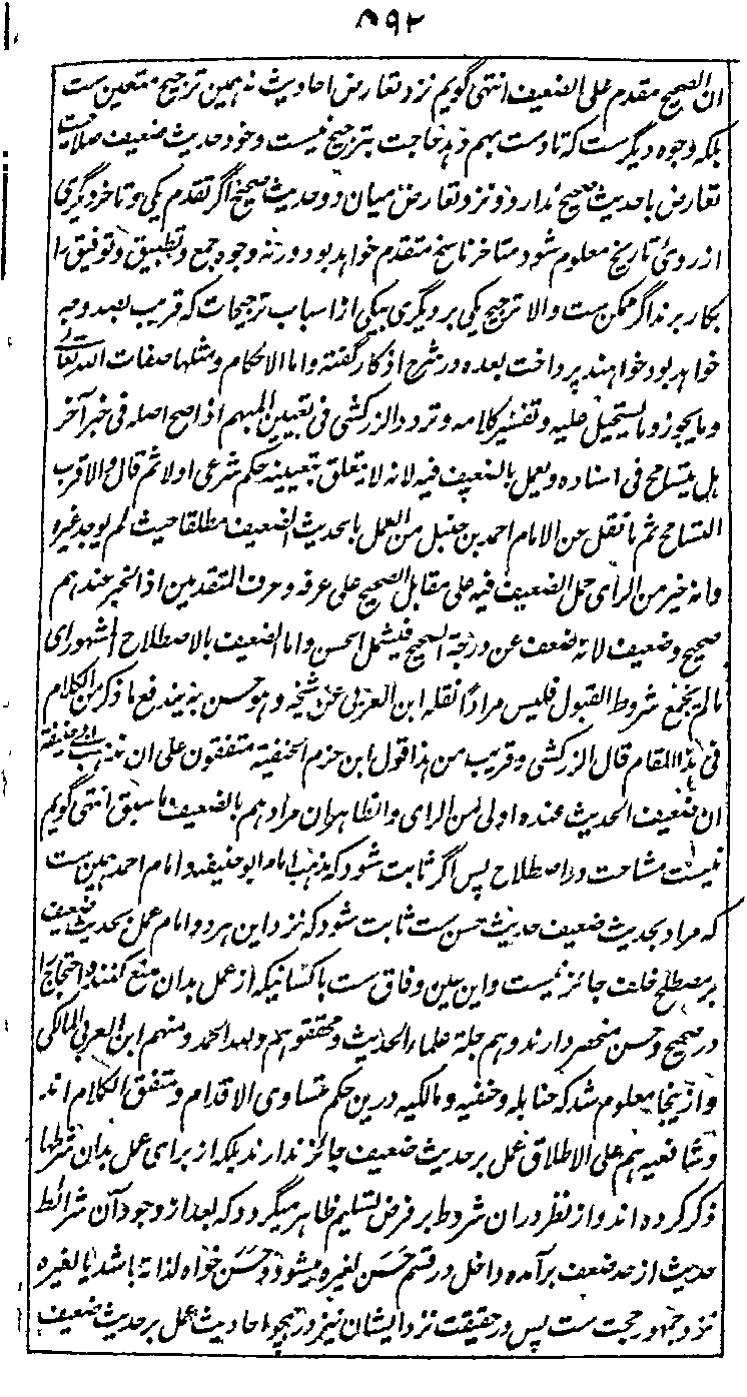 ۵۹۲
ان الصحیح مقدم علی الضعیف انتهی گویم نزد تعارض احادیث نه همین ترجیح متعین ست
بلکه وجوه دیگر ست که تا دست بهم دهد حاجت بترجیح نیست و خود حدیث ضعیف صلاحیت
تعارض با حدیث صحیح ندارد و نزد تعارض میان دو حدیث صحیح اگر تقدم یکی و تاخر دیگری
از روی تاریخ معلوم شود متاخر ناسخ متقدم خواهد بود ورنه وجوه جمع و تطبیق و توفیق را
بکار برند اگر ممکن ست والا ترجیح یکی بر دیگری بیکی از اسباب ترجیحات که قریب بصد وجه
خواهد بود خواهند پرداخت بعده در شرح اذکار گفته واما الاحکام ومثلها صفات الله تعالی
وما یجوز وما یستحیل علیه وتفسیر کلامه وتردد الزرکشی فی تعیین المبهم اذا صح اصله فی خبر آخر
هل یتسامح فی اسناده ویعمل بالضعیف فیه لانه لا یتعلق بتعیینه حکم شرعی اولا ثم قال والاقرب
التسامح ثم ما نقل عن الامام احمد بن حنبل من العمل بالحدیث الضعیف مطلقا حیث لم یوجد غیره
وانه خیر من الرأی حمل الضعیف فیه علی مقابل الصحیح علی عرفه وعرف المتقدمین اذ الخبر عندهم
صحیح وضعیف لانه ضعف عن درجة الصحیح فیشمل الحسن واما الضعیف بالاصطلاح المشهور ای
مالم یجمع شروط القبول فلیس مرادا نقله ابن العربی عن شیخه وهو حسن به یندفع ما ذکر من الکلام
فی هذا المقام قال الزرکشی وقریب من هذا قول ابن حزم الحنفیة متفقون علی ان مذهب ابی حنیفة
ان ضعیف الحدیث عنده اولی من الرای والظاهر ان مرادهم بالضعیف ما سبق انتهی گویم
نیست مشاحت در اصطلاح پس اگر ثابت شود که مذهب امام ابو حنیفه و امام احمد همین ست
که مراد بحدیث ضعیف حدیث حسن ست ثابت شود که نزد این هر دو امام عمل بحدیث ضعیف
بر مصطلح خلف جائز نیست و این عین وفاق ست با کسانیکه از عمل بدان منع کنند و احتجاج را
در صحیح و حسن منحصر دارند وهم جلة علماء الحدیث ومحققوهم ولله الحمد ومنهم ابن العربی المالکی
و از ینجا معلوم شد که حنابله و حنفیه و مالکیه درین حکم متساوی الاقدام و متفق الکلام اند
و شافعیه هم علی الاطلاق عمل بر حدیث ضعیف جائز ندارند بلکه از برای عمل بدان شرطها
ذکر کرده اند و از نظر دران شروط بر فرض تسلیم ظاهر میگردد که بعد از وجود آن شرائط
حدیث از حد ضعف برآمده داخل در قسم حَسَن لغیره میشود و حَسَن خواه لذاته باشد یا لغیره
نزد جمهور حجت ست پس در حقیقت نزد ایشان نیز در همچو احادیث عمل بر حدیث ضعیف